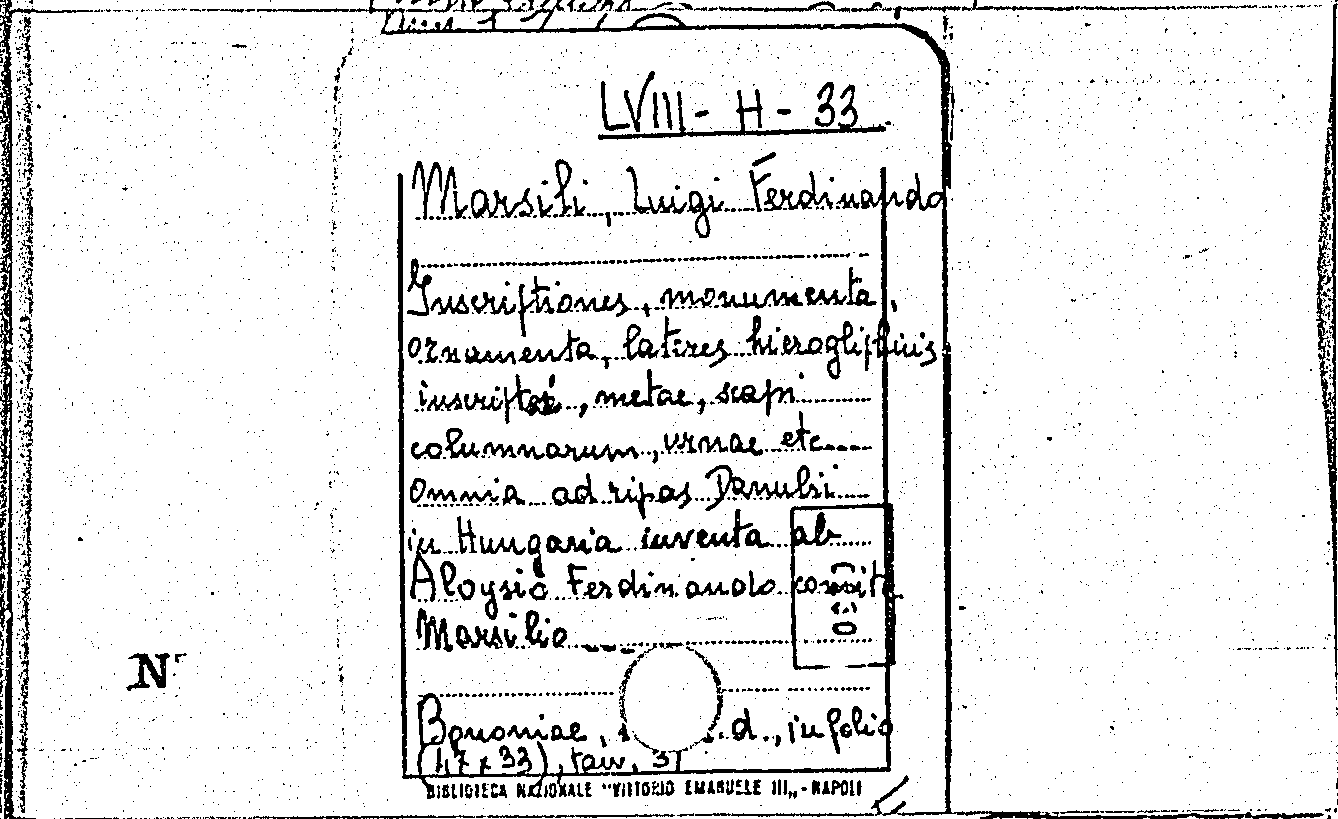 LVIII - H - 33
Marsili, Luigi Ferdinando
Inscriptiones, monumenta,
ornamenta, lateres hieroglificis
inscriptae, metae, scapi
columnarum, urnae etc.
omnia ad ripas Danubii
in Hungaria inventa ab
Aloysio Ferdinando comite
Marsilio
Bononiae, d., in folio
(47 x 33), tav. 31
BIBLIOTECA NAZIONALE "VITTORIO EMANUELE III„ - NAPOLI
N